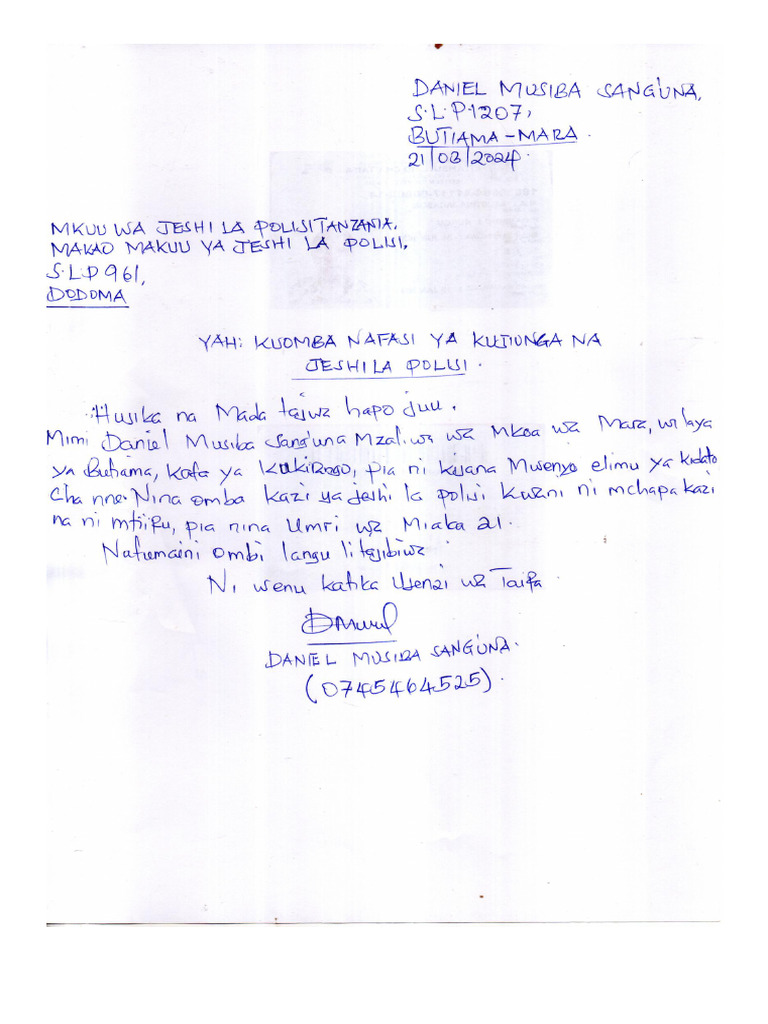 DANIEL MUSIBA SANG'UNA,
S.L.P.1207,
BUTIAMA-MARA.
21/03/2024.
MKUU WA JESHI LA POLISI TANZANIA,
MAKAO MAKUU YA JESHI LA POLISI,
S.L.P 961,
DODOMA
YAH: KUOMBA NAFASI YA KUJIUNGA NA
JESHI LA POLISI.
Husika na Mada tajwa hapo juu.
Mimi Daniel Musiba Sang'una Mzaliwa wa Mkoa wa Mara, wilaya
ya Butiama, Kata ya KUKIRANGO, pia ni kijana Mwenye elimu ya kidato
Cha nne. Nina omba kazi ya jeshi la polisi Kwani ni mchapa kazi
na ni mtiifu, pia nina Umri wa Miaka 21.
Natumaini ombi langu litajibiwa
Ni wenu katika Ujenzi wa Taifa
DANIEL MUSIBA SANG'UNA.
(0745464525).